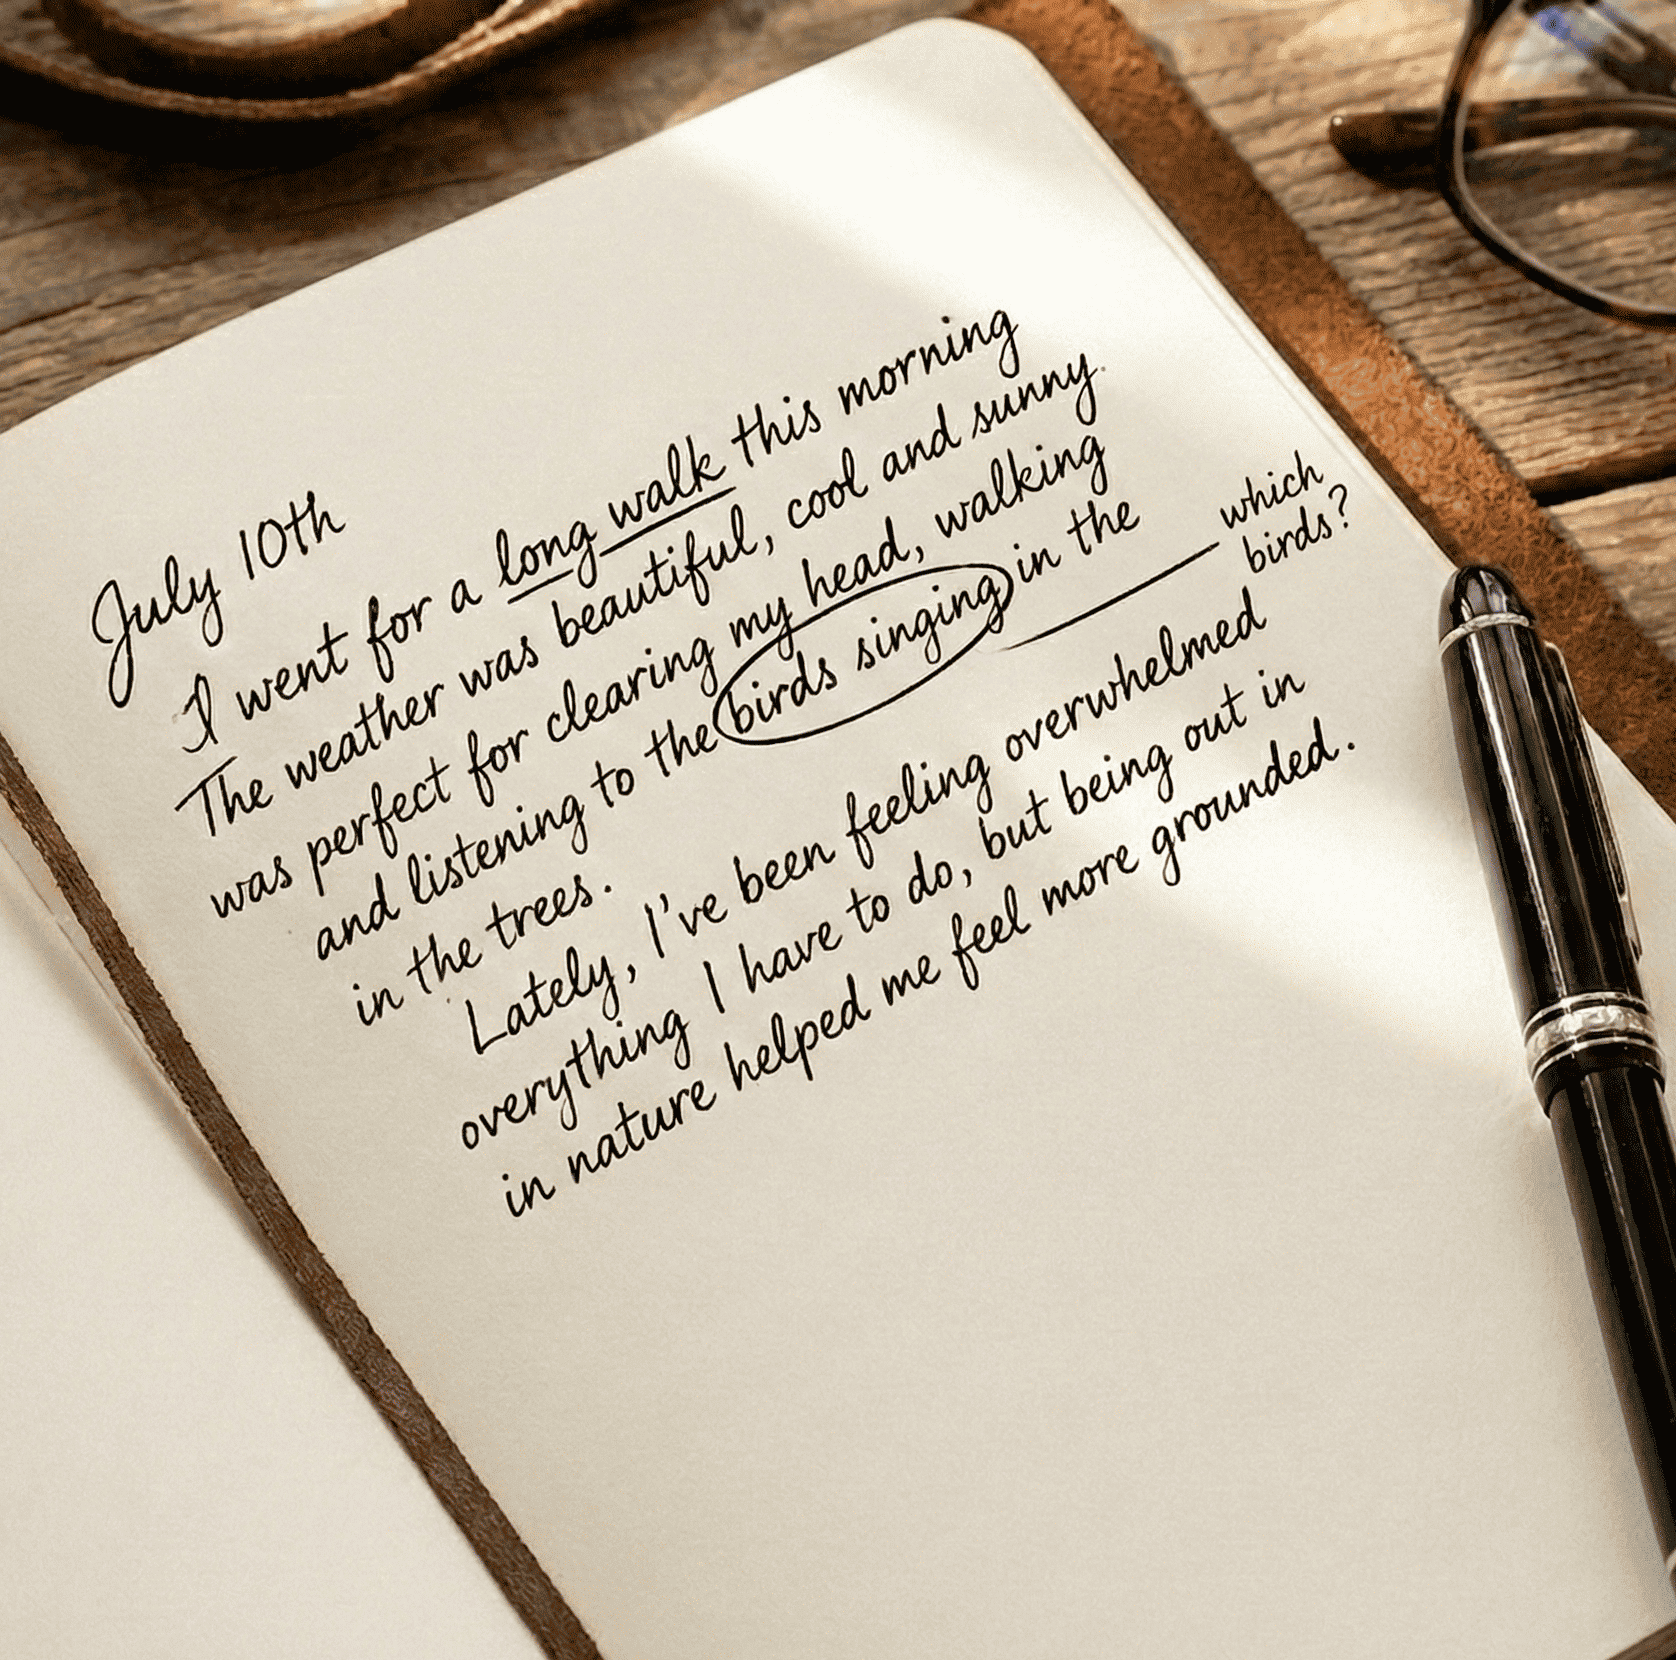 July 10th
I went for a long walk this morning
The weather was beautiful, cool and sunny.
was perfect for clearing my head, walking
and listening to the birds singing in the
which
birds?
in the trees.
Lately, I've been feeling overwhelmed
overything I have to do, but being out in
in nature helped me feel more grounded.